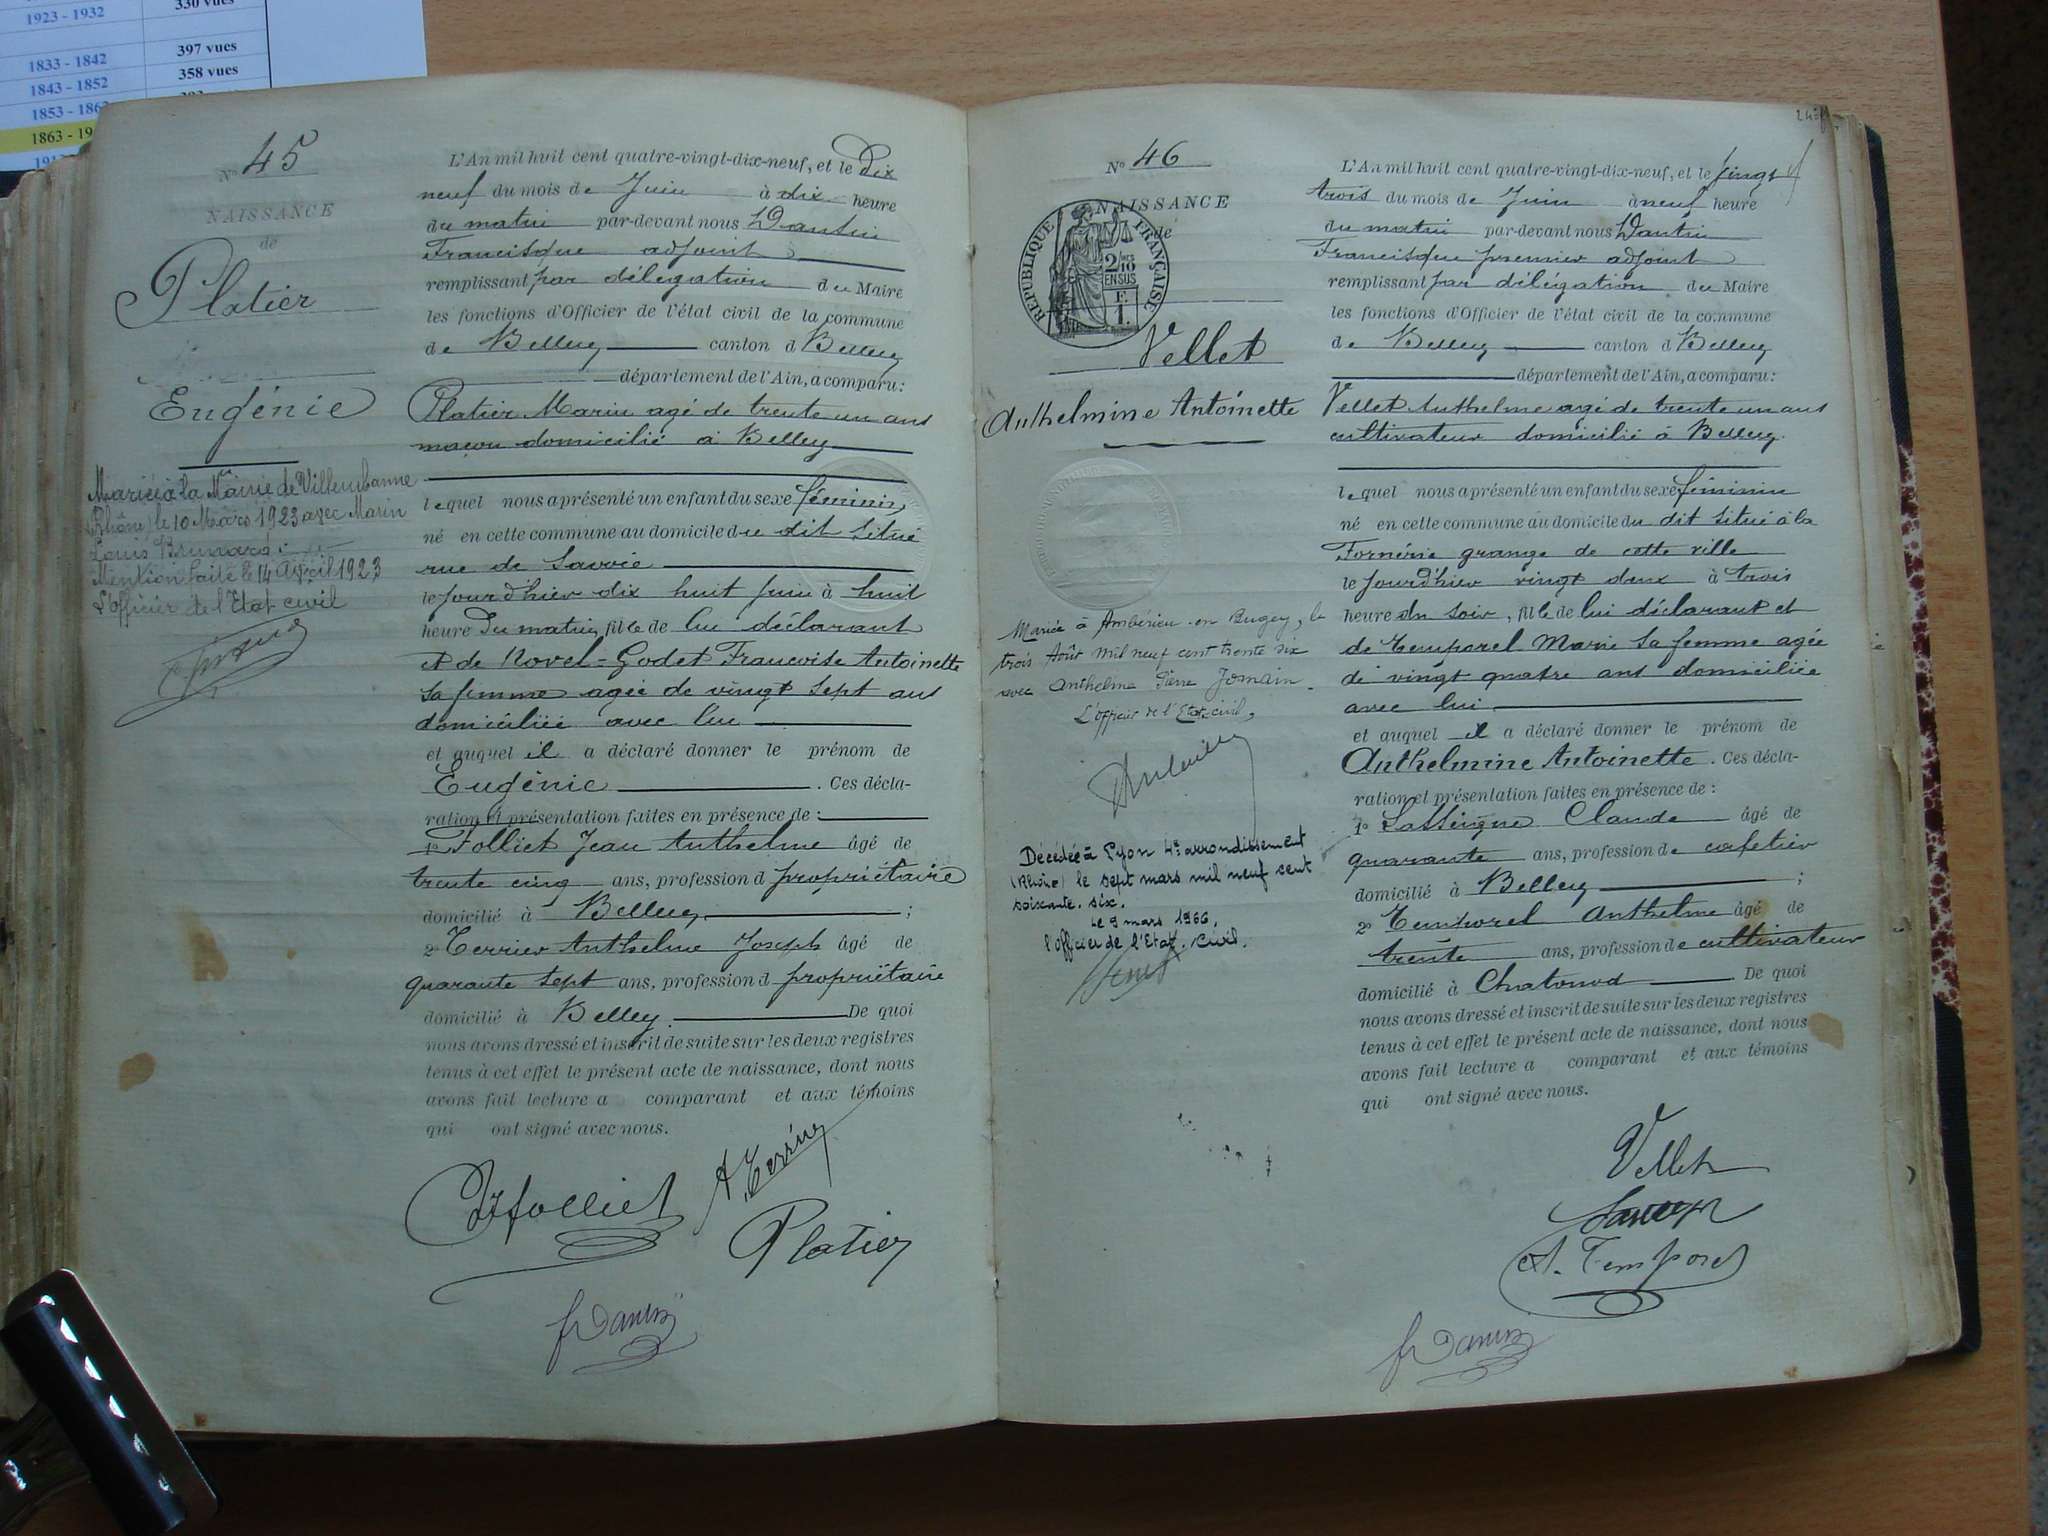 1923 - 1932 330 vues
1833 - 1842 397 vues
1843 - 1852 358 vues
1853 - 186
1863 - 19
N° 45
NAISSANCE
de
Platier
Eugénie
Mariée à la Mairie de Villeurbanne
(Rhône) le 10 Mars 1923 avec Marin
Louis
Mention faite le 14 Avril 1923
L'officier de l'Etat civil
L'An mil huit cent quatre-vingt-dix-neuf, et le Dix
neuf du mois de Juin à dix heure
du matin par-devant nous Dantin
Francisque adjoint
remplissant par délégation du Maire
les fonctions d'Officier de l'état civil de la commune
de Belley canton d Belley
département de l'Ain, a comparu :
Platier Marin agé de trente un ans
maçon domicilié à Belley
lequel nous a présenté un enfant du sexe féminin,
né en cette commune au domicile du dit situé
rue de Savoie
le jourd'hier dix huit juin à huit
heure du matin, fille de lui déclarant
et de Novel-Godet Francoise Antoinette
sa femme agée de vingt sept ans
domiciliée avec lui
et auquel il a déclaré donner le prénom de
Eugénie . Ces décla-
ration et présentation faites en présence de :
1° Folliet Jean Anthelme âgé de
trente cinq ans, profession d propriétaire
domicilié à Belley ;
2° Terrier Anthelme Joseph âgé de
quarante sept ans, profession d propriétaire
domicilié à Belley. De quoi
nous avons dressé et inscrit de suite sur les deux registres
tenus à cet effet le présent acte de naissance, dont nous
avons fait lecture a comparant et aux témoins
qui ont signé avec nous.
Folliet
Platier
F Dantin
N° 46
NAISSANCE
de
RÉPUBLIQUE FRANÇAISE
2/10
EN SUS
F.
1.
Vellet
Anthelmine Antoinette
Mariée à Ambérieu-en-Bugey, le
trois Août mil neuf cent trente six
avec Anthelme Pierre Jomain.
L'officier de l'Etat civil,
Décédée à Lyon 4e arrondissement
(Rhône) le sept mars mil neuf cent
soixante. six.
le 9 mars 1966.
l'officier de l'Etat. civil.
L'An mil huit cent quatre-vingt-dix-neuf, et le vingt
trois du mois de Juin à neuf heure
du matin par-devant nous Dantin
Francisque premier adjoint
remplissant par délégation du Maire
les fonctions d'Officier de l'état civil de la commune
de Belley canton d Belley
département de l'Ain, a comparu :
Vellet Anthelme agé de trente un ans
cultivateur domicilié à Belley.
lequel nous a présenté un enfant du sexe féminin
né en cette commune au domicile du dit situé à la
Fornérie grange de cette ville
le jourd'hier vingt deux à trois
heure du soir, fille de lui déclarant et
de Temporel Marie sa femme agée
de vingt quatre ans domiciliée
avec lui
et auquel il a déclaré donner le prénom de
Anthelmine Antoinette. Ces décla-
ration et présentation faites en présence de :
1° Claude âgé de
quarante ans, profession de cafetier
domicilié à Belley ;
2° Temporel Anthelme âgé de
trente ans, profession de cultivateur
domicilié à Chatonod De quoi
nous avons dressé et inscrit de suite sur les deux registres
tenus à cet effet le présent acte de naissance, dont nous
avons fait lecture a comparant et aux témoins
qui ont signé avec nous.
Vellet
A. Temporel
F Dantin